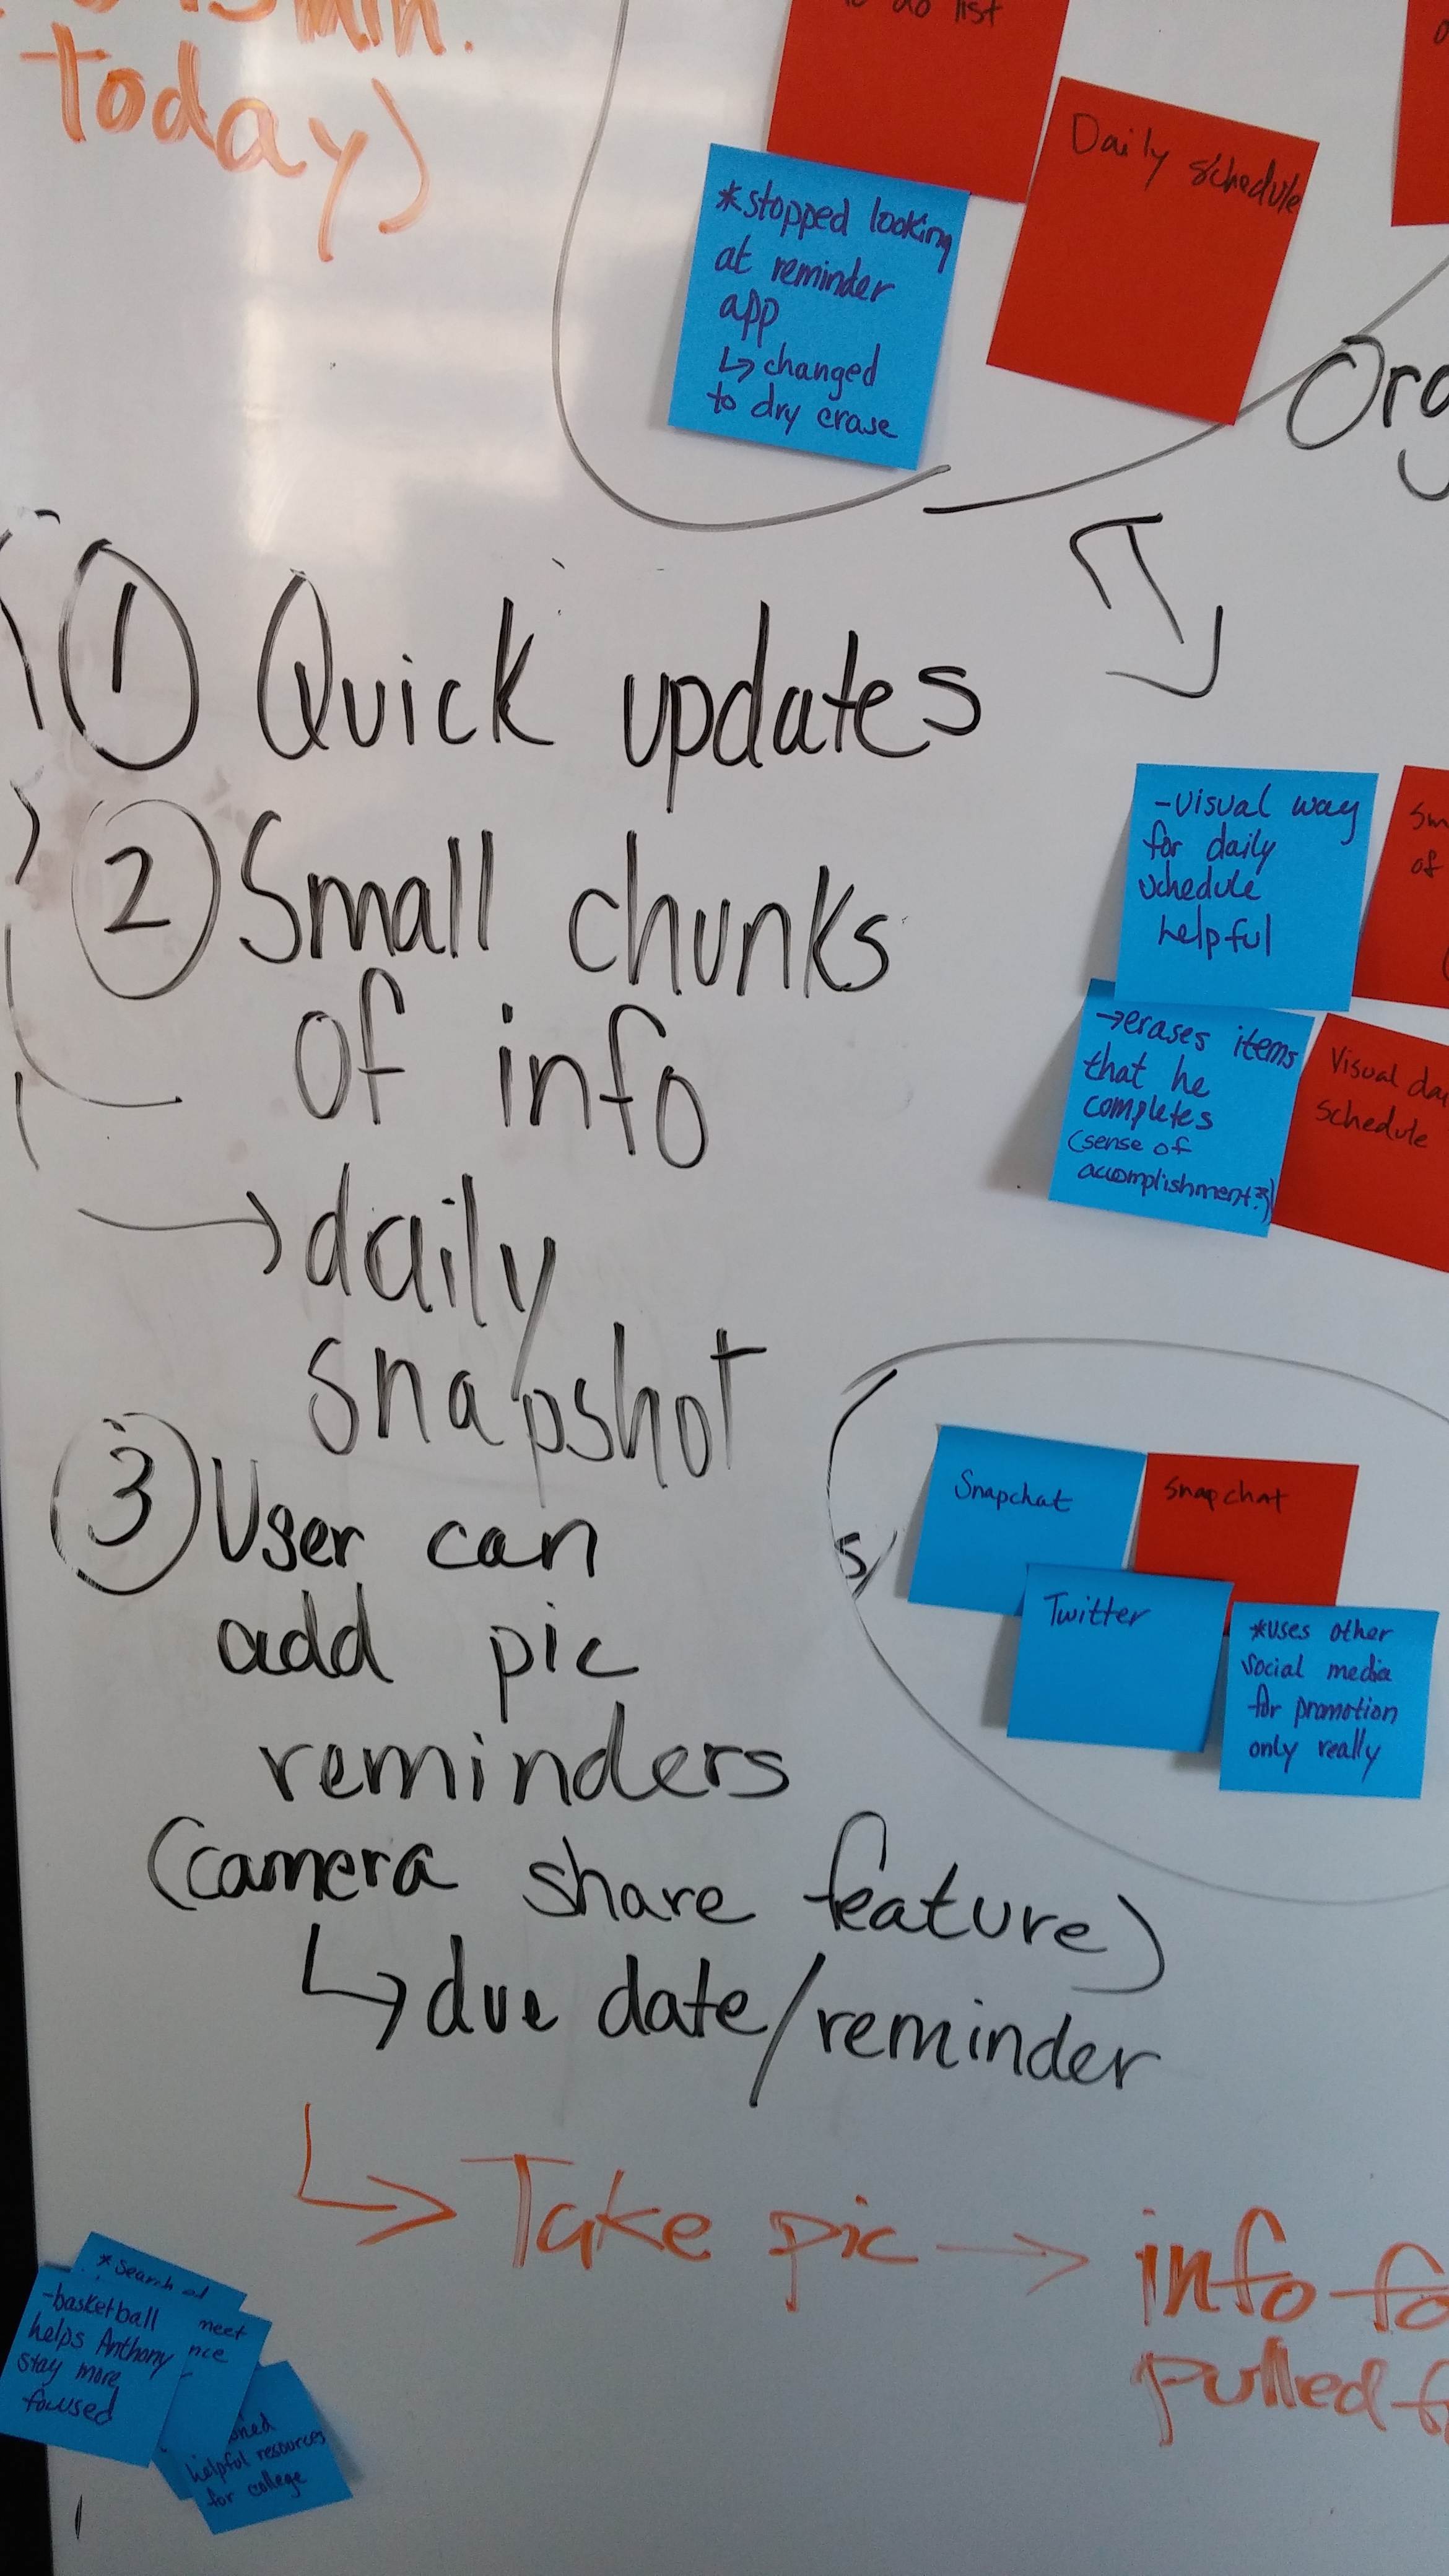 min.
today)
to do list
Daily schedule
*stopped looking
at reminder
app
↳ changed
to dry erase
① Quick updates
② Small chunks
of info
→ daily
snapshot
③ User can
add pic
reminders
(camera share feature)
↳ due date/reminder
↳ Take pic → info
pulled
-visual way
for daily
schedule
helpful
of
→erases items
that he
completes
(sense of
accomplishment?)
Visual
schedule
Snapchat
Snapchat
Twitter
*uses other
social media
for promotion
only really
*Search
-basketball
helps Anthony
stay more
focused
meet
helpful resources
for college